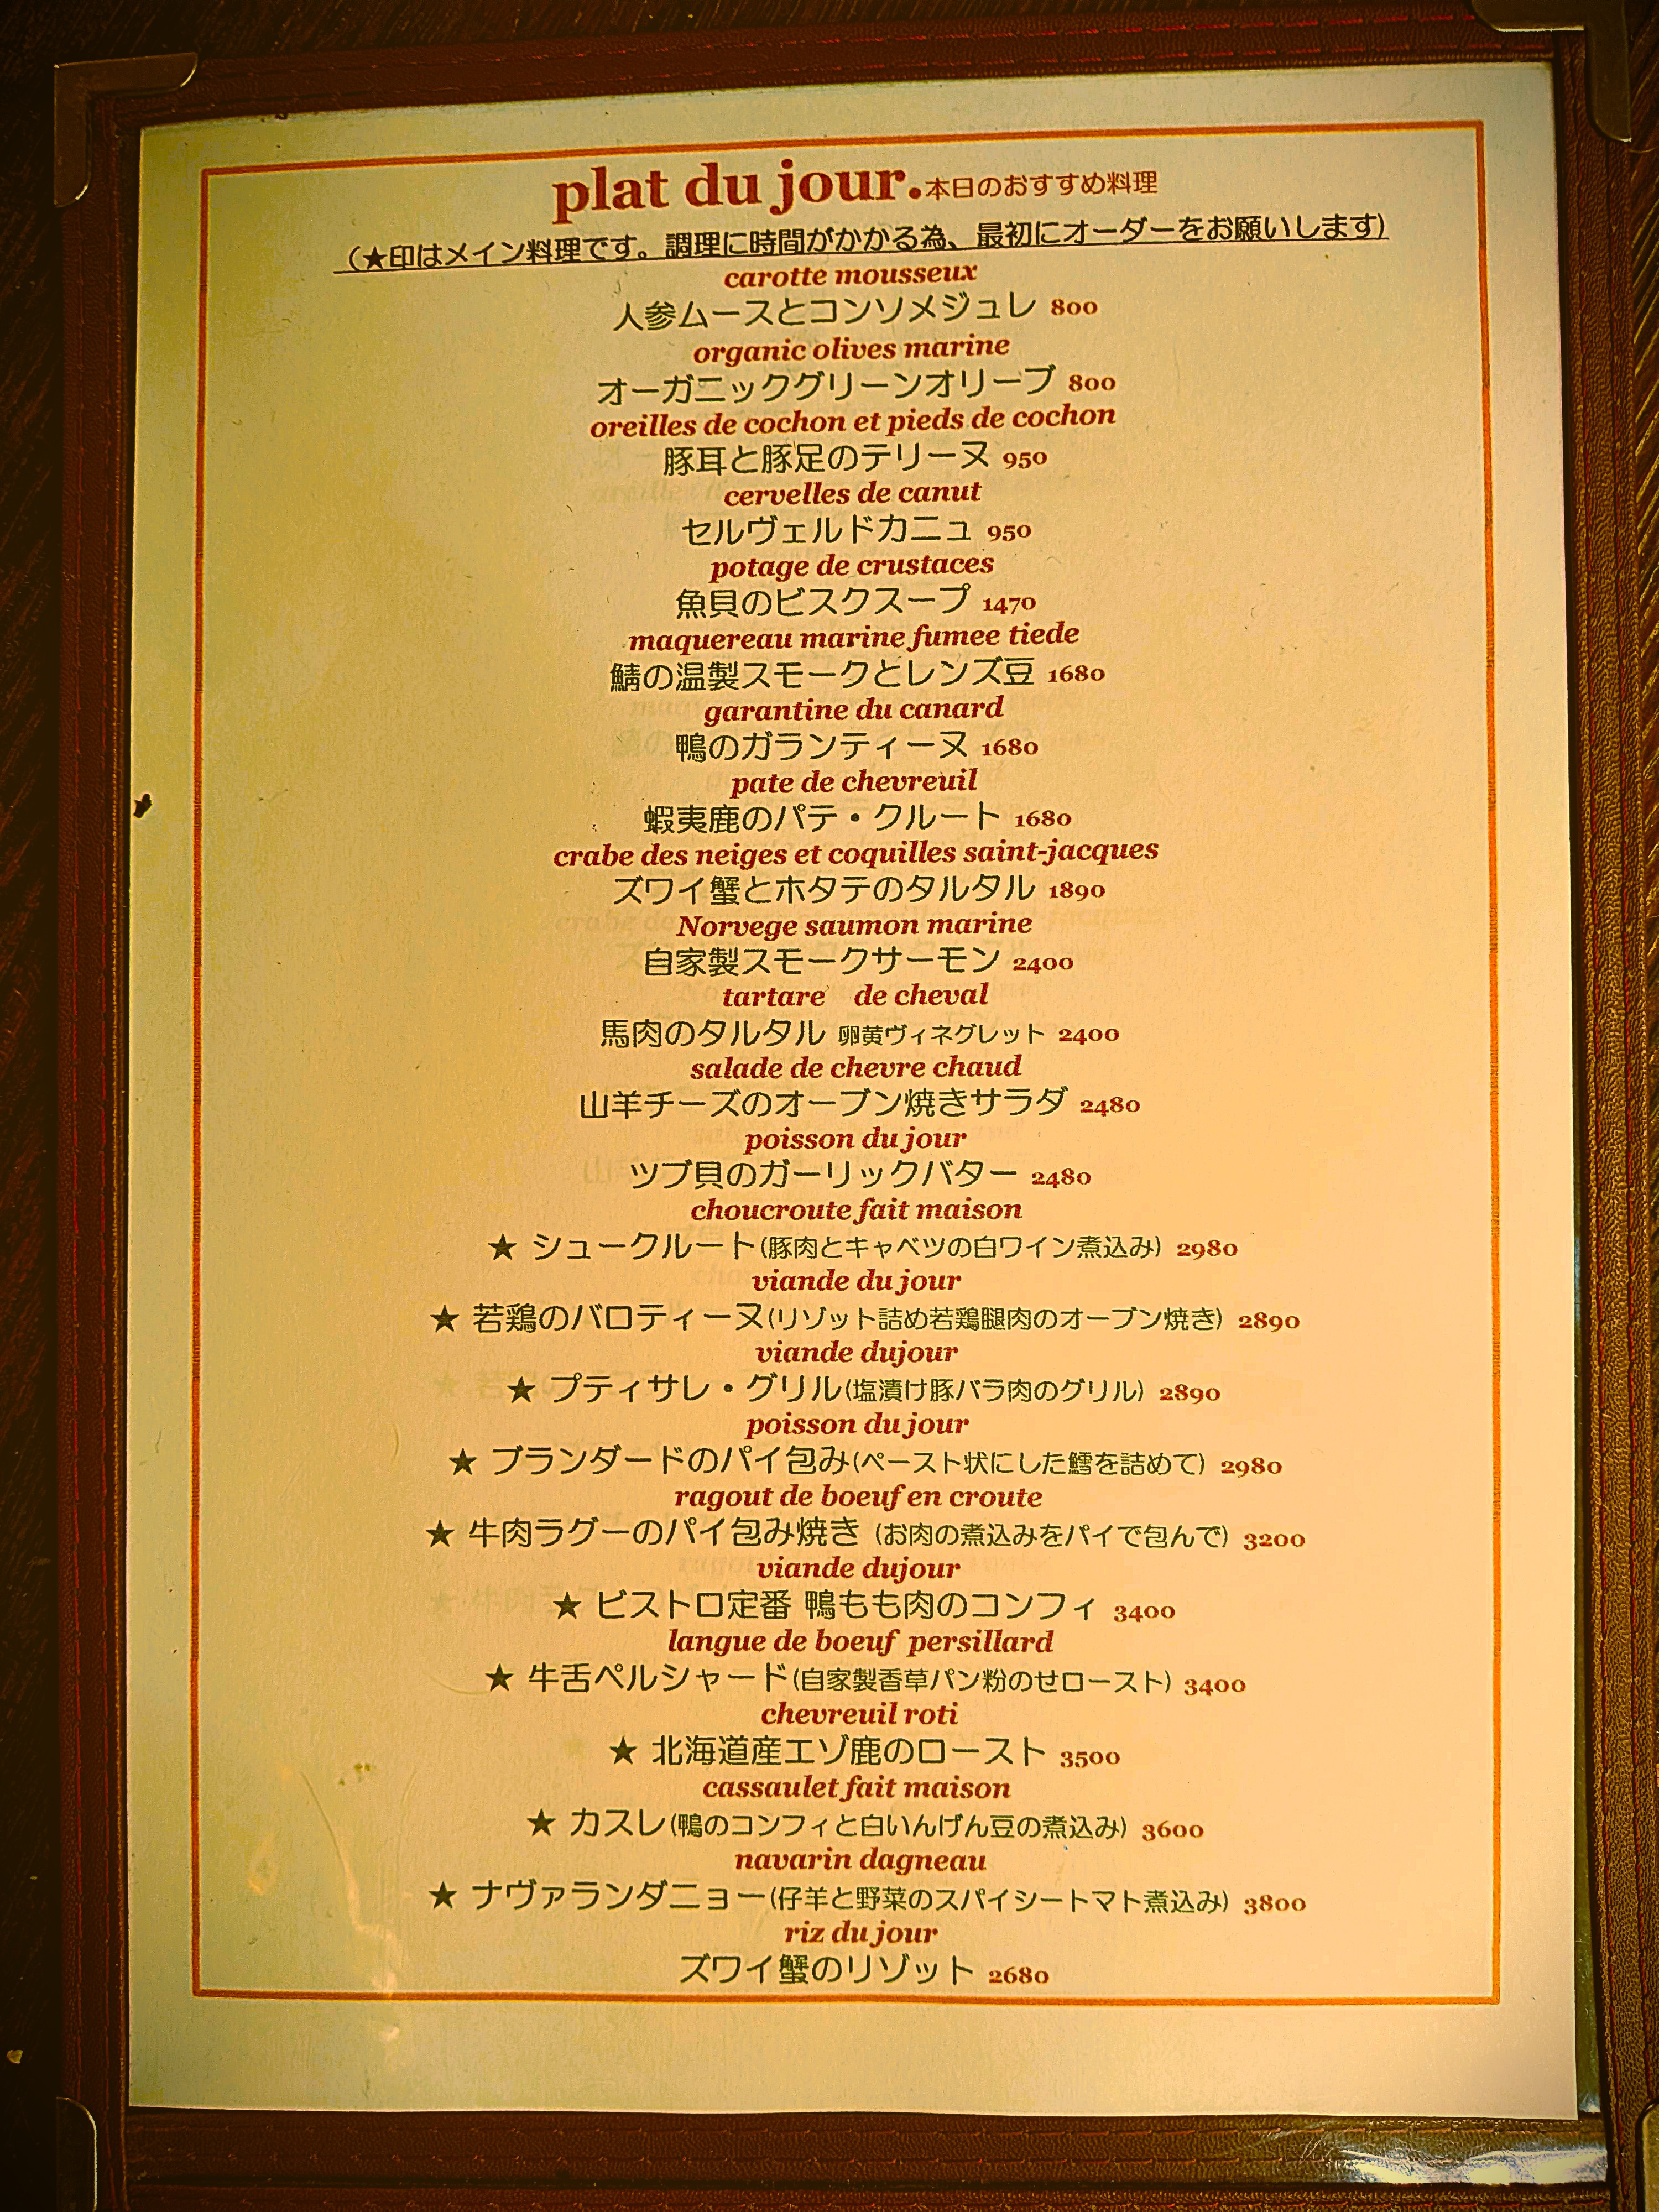 plat du jour.本日のおすすめ料理
（★印はメイン料理です。調理に時間がかかる為、最初にオーダーをお願いします）
carotte mousseux
人参ムースとコンソメジュレ 800
organic olives marine
オーガニックグリーンオリーブ 800
oreilles de cochon et pieds de cochon
豚耳と豚足のテリーヌ 950
cervelles de canut
セルヴェルドカニュ 950
potage de crustaces
魚貝のビスクスープ 1470
maquereau marine fumee tiede
鯖の温製スモークとレンズ豆 1680
garantine du canard
鴨のガランティーヌ 1680
pate de chevreuil
蝦夷鹿のパテ・クルート 1680
crabe des neiges et coquilles saint-jacques
ズワイ蟹とホタテのタルタル 1890
Norvege saumon marine
自家製スモークサーモン 2400
tartare de cheval
馬肉のタルタル 卵黄ヴィネグレット 2400
salade de chevre chaud
山羊チーズのオーブン焼きサラダ 2480
poisson du jour
ツブ貝のガーリックバター 2480
choucroute fait maison
★ シュークルート(豚肉とキャベツの白ワイン煮込み) 2980
viande du jour
★ 若鶏のバロティーヌ(リゾット詰め若鶏腿肉のオーブン焼き) 2890
viande dujour
★ プティサレ・グリル(塩漬け豚バラ肉のグリル) 2890
poisson du jour
★ ブランダードのパイ包み(ペースト状にした鱈を詰めて) 2980
ragout de boeuf en croute
★ 牛肉ラグーのパイ包み焼き (お肉の煮込みをパイで包んで) 3200
viande dujour
★ ビストロ定番 鴨もも肉のコンフィ 3400
langue de boeuf persillard
★ 牛舌ペルシャード(自家製香草パン粉のせロースト) 3400
chevreuil roti
★ 北海道産エゾ鹿のロースト 3500
cassaulet fait maison
★ カスレ(鴨のコンフィと白いんげん豆の煮込み) 3600
navarin dagneau
★ ナヴァランダニョー(仔羊と野菜のスパイシートマト煮込み) 3800
riz du jour
ズワイ蟹のリゾット 2680